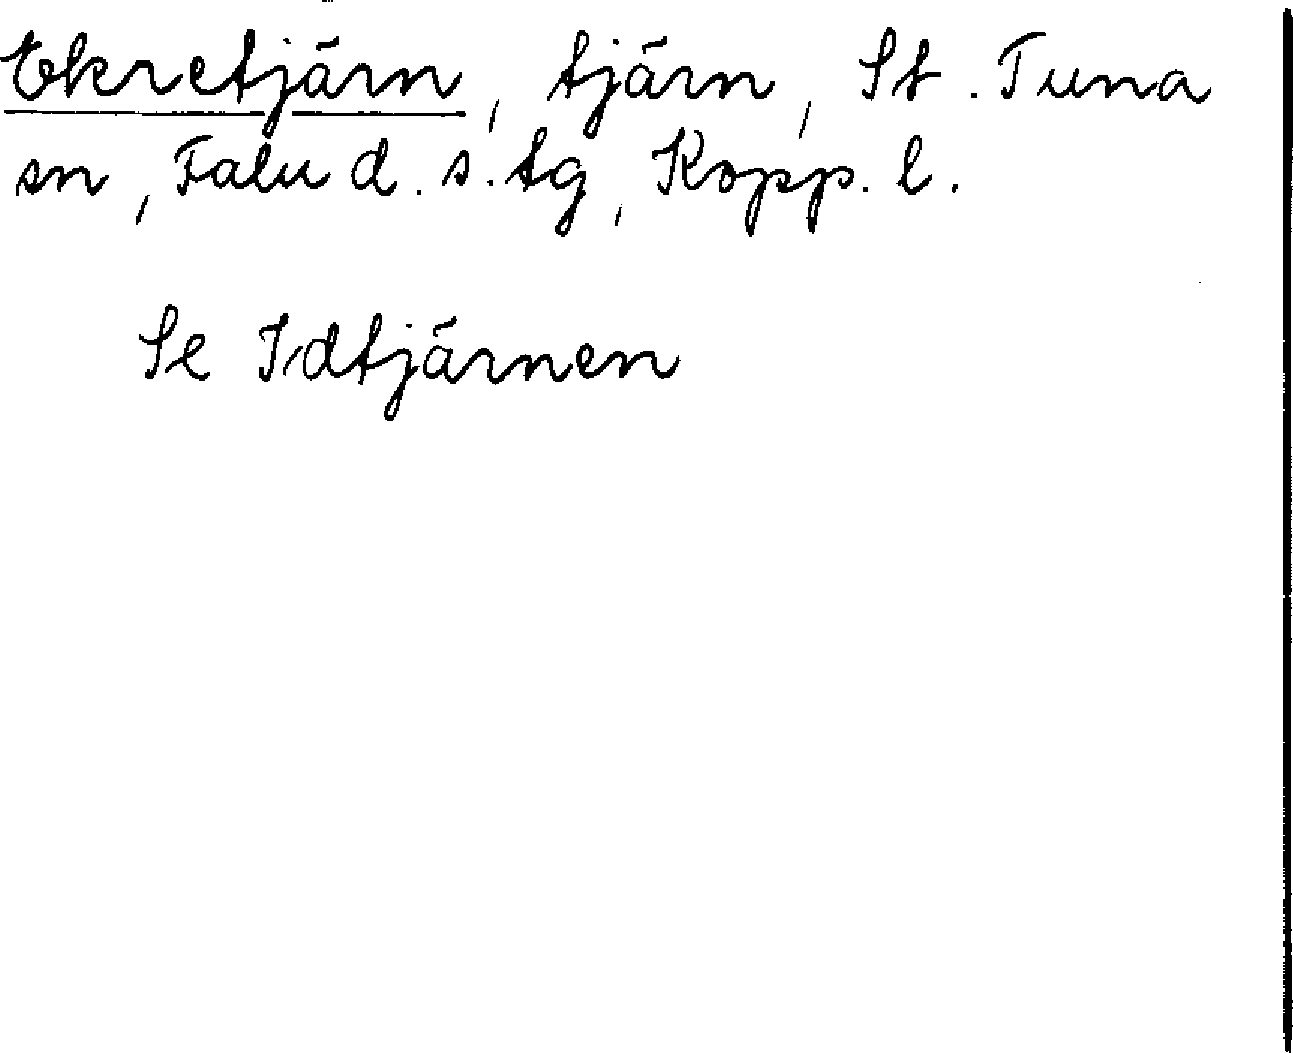 Ekretjärn, tjärn, St. Tuna
sn, Falu d. s. tg, Kopp. l.
Se Idtjärnen